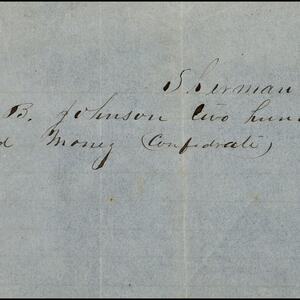 Sherman
B. Johnson two hun
d Money (Confedrate)